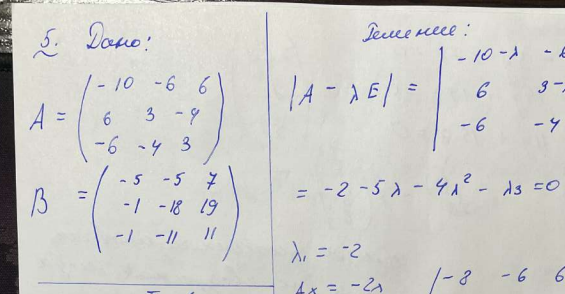 5. Дано:
A = ( -10 -6 6
6 3 -4
-6 -4 3 )
B = ( -5 -5 7
-1 -18 19
-1 -11 11 )
Решение:
|A - λE| = | -10-λ
6 3-
-6 -4
= -2 -5λ - 4λ² - λ3 = 0
λ₁ = -2
Ax = -2x | -8 -6 6